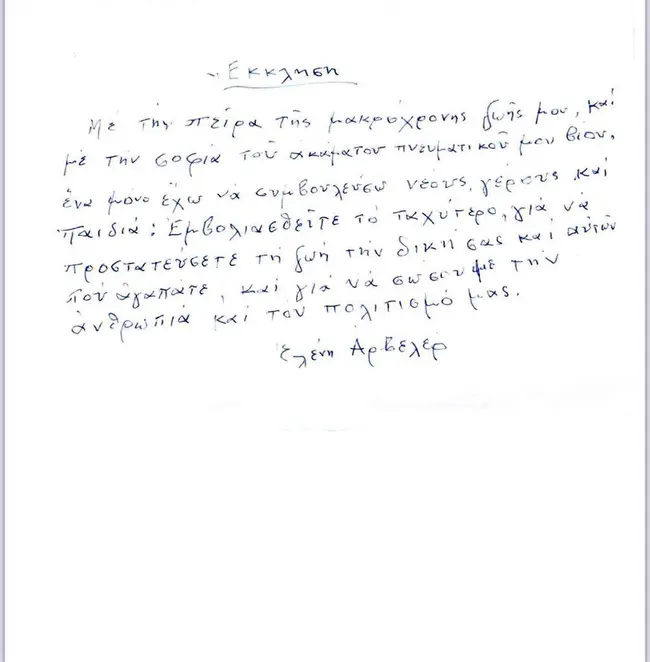 Εκκληση
Μέ τήν πεῖρα τῆς μακρόχρονης ζωῆς μου, καί
μέ τήν σοφία τοῦ ακαματου πνευματικοῦ μου βιου,
ἕνα μονο ἔχω νά συμβουλεύσω νέους, γέρους καί
παιδιά: Ἐμβολιασθεῖτε τό ταχύτερο, γιά νά
προστατεύσετε τή ζωή τήν δική σας καί αὐτῶν
πού ἀγαπᾶτε, καί γιά νά σώσουμε τήν
ἀνθρωπιά καί τόν πολιτισμό μας.
Ἑλένη Ἀρβελέρ